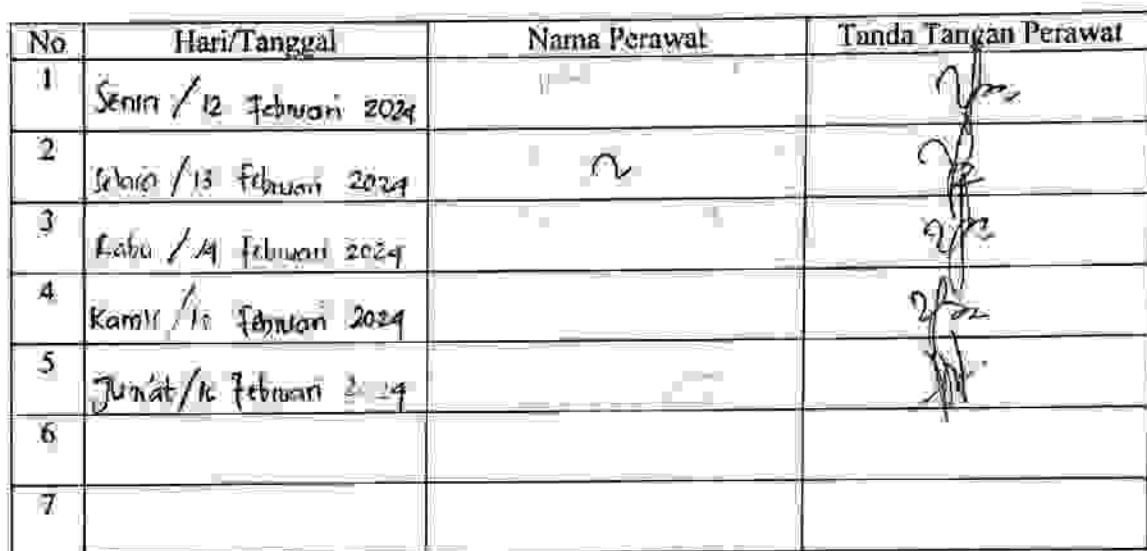 No Hari/Tanggal Nama Perawat Tanda Tangan Perawat
1 Senin / 12 Februari 2024
2 Selasa / 13 Februari 2024
3 Rabu / 14 Februari 2024
4 Kamis / 15 Februari 2024
5 Jum'at / 16 Februari 2024
6
7